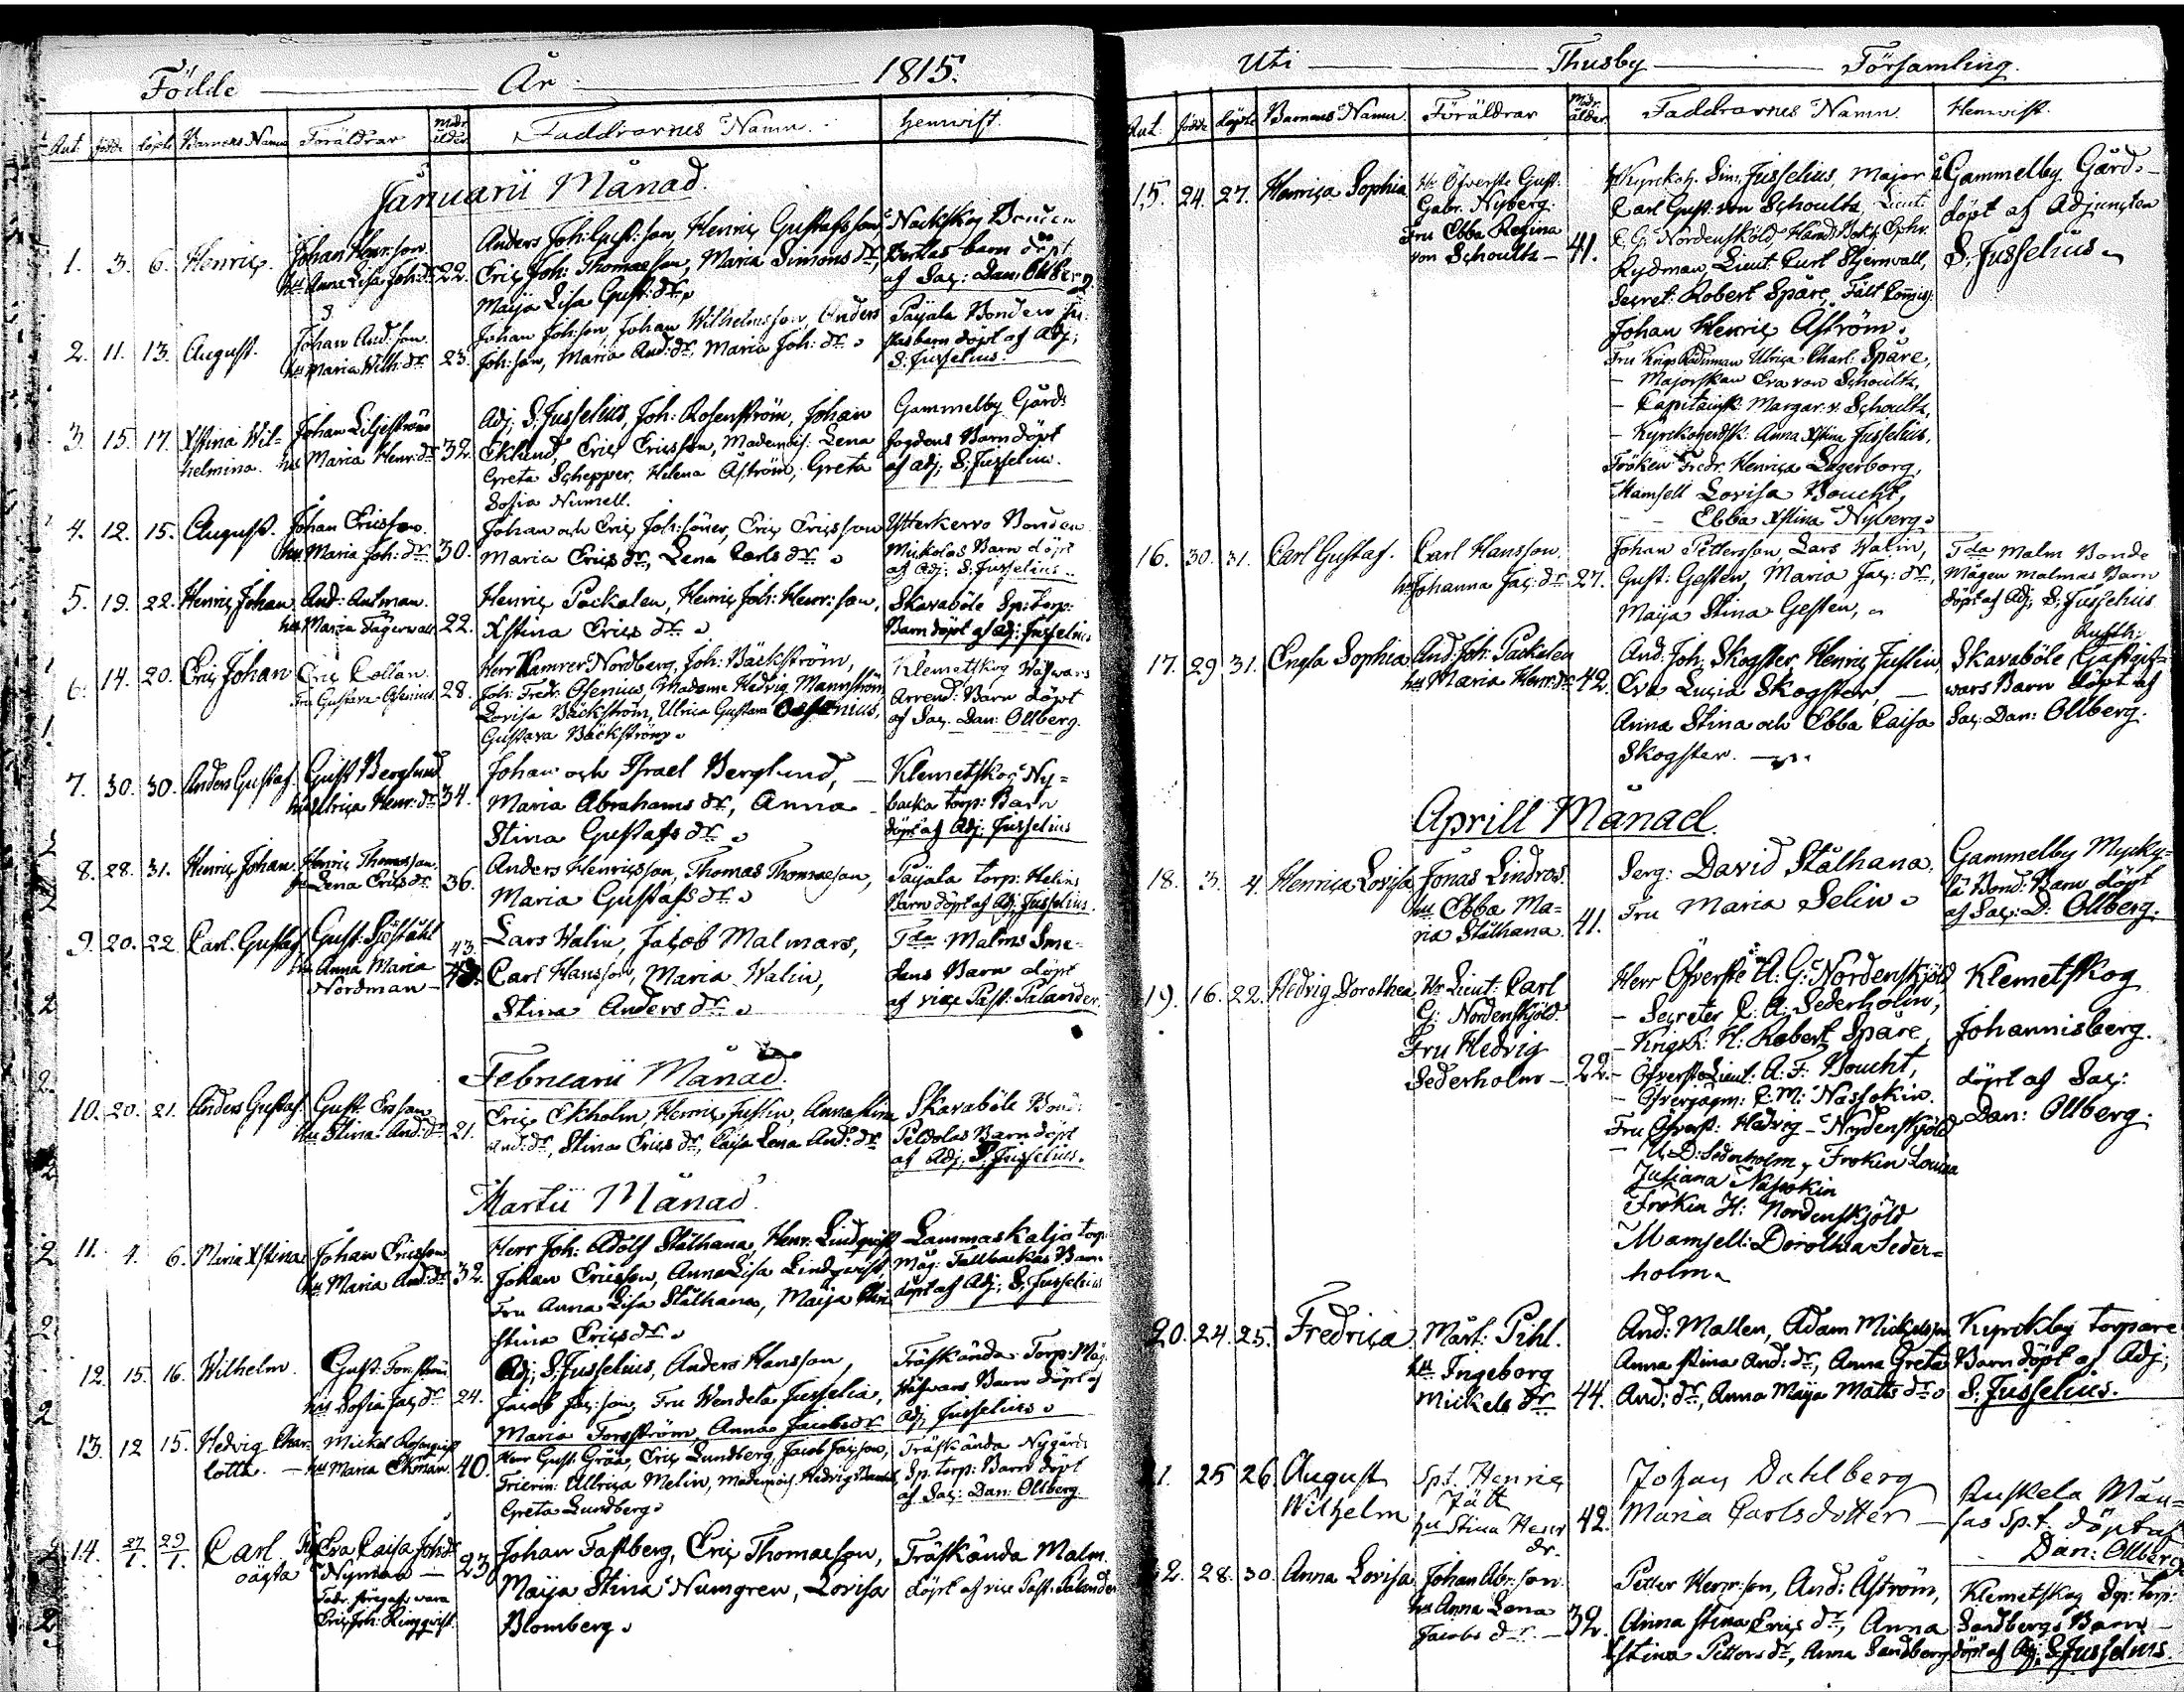 Födde År 1815.
Ant. födde döpte Barnens Namn Föräldrar Modr ålder Faddrarnes Namn. hemvist.
Januarii Månad.
1. 3. 6. Henric. Johan Henr:son
hu Anna Lisa Joh: dr 22.
Anders Joh: Gust: son, Henric Gustafsson,
Eric Joh: Thomasson, Maria Simons dr,
Maija Lisa Gust: dr
Nackskog Bonden
barn döpt
af Sac: Dan: Ollberg
2. 11. 13. August. Johan And: son.
hu Maria Wilh: dr 23.
Johan Joh: son, Johan Wilhelmsson, Anders
Joh: son, Maria And: dr, Maria Joh: dr
Paijala Bonden
barn döpt af Adj:
S: Jusselius.
3. 15. 17. Xstina Wil=
helmina.
Johan Liljeström
hu Maria Henr: dr 32.
Adj: S: Jusselius, Joh: Rosenström, Johan
Eklund, Eric Ericsson, Lena
Greta Schepper, Helena Åström, Greta
Sofia Numell.
Gammelby Gårds
fogdens Barn döpt
af adj: S: Jusselius.
4. 12. 15. August. Johan Ericsson.
hu Maria Joh: dr 30.
Johan och Eric Joh: söner, Eric Ericsson
Maria Erics dr, Lena Carls dr
Ytterkervo Bonden
Mickolas Barn döpt
af Adj: S: Jusselius.
5. 19. 22. Henric Johan And: Antman.
hu Maria Fagerwall 22.
Henric Packalen, Henric Joh: Henr: son,
Xstina Erics dr
Skavaböle Sp: torp:
Barn döpt af Adj: Jusselius
6. 14. 20. Eric Johan Eric Collan.
Fru Gustava Osenius 28.
Herr Kamrer Nordberg, Joh: Bäckström,
Joh: Fredr: Osenius, Madame Hedvig Mannström
Lovisa Bäckström, Ulrica Gustava Osenius,
Gustava Bäckström
Klemetskog
Arrend: Barn döpt
af Sac: Dan: Ollberg.
7. 30. 30. Anders Gustaf. Gust Berglund
hu Ulrica Henr: dr 34.
Johan och Israel Berglund,
Maria Abrahams dr, Anna
Stina Gustafs dr
Klemetskog Ny=
backa torp: Barn
döpt af Adj: Jusselius
8. 28. 31. Henric Johan. Henric Thomasson.
hu Lena Erics dr. 36.
Anders Henricsson, Thomas Thomasson,
Maria Gustafs dr
Paijala torp: Helins
Barn döpt af Adj: Jusselius.
9. 20. 22. Carl Gustaf Gust: Sjöståhl
hu Anna Maria
Nordman
43.
Lars Walin, Jacob Malmars,
Carl Hansson, Maria Walin,
Stina Anders dr
Tda Malms Sme=
dens Barn döpt
af vice Past: Palander.
Februarii Månad.
10. 20. 21. Anders Gustaf. Gust: Ersson
hu Stina And: dr 21.
Eric Ekholm, Henric Juslin, Anna Stina
And: dr, Stina Erics dr, Caisa Lena And: dr
Skavaböle Bond:
Peldolas Barn döpt
af Adj: S: Jusselius.
Martii Månad
11. 4. 6. Maria Xstina Johan Ericsson
hu Maria And: dr 32.
Herr Joh: Adolf Stålhana, Henr: Lindqvist
Johan Ericsson, Anna Lisa Lindqvist
Fru Anna Lisa Stålhana, Maija Chri
stina Erics dr
Lammaskalio torp:
Måg: Tallbackas Barn
döpt af Adj: S: Jusselius
12. 15. 16. Wilhelm. Gust: Forsström
hu Sofia Jac: dr 24.
Adj: S: Jusselius, Anders Hansson,
Jacob Jac: son, Fru Wendela Jusselia,
Maria Forsström, Anna Jacobs dr
Träskända Torp: Måg.
Barn döpt af
Adj: Jusselius
13. 12 15. Hedvig Char=
lotta.
Mickel Rosenqvist
hu Maria Ekman. 40.
Herr Gust: Gråå, Eric Lundberg, Jacob Jacson,
Ullrica Melin, Hedvig
Greta Lundberg
Träskända Nygårds
Sp. torp: Barn döpt
af Sac: Dan: Ollberg.
14. 27/1. 29/1. Carl
oägta
Pig: Eva Caisa Joh: dr
Nyman 23
Fadr. föregafs vara
Eric Joh: Ringqvist.
Johan Fastberg, Eric Thomasson,
Maija Stina Numgren, Lovisa
Blomberg
Träskända Malm.
döpt af vice Past: Palander
Uti Thusby Församling.
Ant. födde döpte Barnens Namn. Föräldrar Modr. ålder. Faddrarnes Namn. Hemvist.
15. 24. 27. Henrica Sophia Hr Öfverste Gust:
Gabr. Nyberg.
Fru Ebba Regina
von Schoultz 41.
Kyrckoh. Sim: Jusselius, Major
Carl Gust: von Schoultz, Lieut
C. G: Nordensköld,
Rydman, Lieut. Carl Stjernvall,
Secret: Robert Spåre, Fält
Johan Henric Åström.
Fru Ulrica Charl: Spåre,
Majorskan Eva von Schoultz,
Capitainsk: Margar: v. Schoultz,
Kyrckoherdsk: Anna Xstina Jusselius,
Fröken Fredr: Henrica Lagerborg,
Mamsell Lovisa Boucht,
Ebba Xstina Nyberg
Gammelby Gård.
döpt af Adjuncten
S: Jusselius
16. 30. 31. Carl Gustaf. Carl Hansson.
hu Johanna Jac: dr 27.
Johan Pettersson, Lars Walin,
Gust: Gesten, Maria Jac: dr,
Maija Stina Gesten,
Tda Malm Bonde
Mågen Malmas Barn
döpt af Adj: S: Jusselius
17. 29 31. Engla Sophia And: Joh: Packalen
hu Maria Henr: dr 42.
And: Joh: Skogster, Henric Juslin,
Eva Lucia Skogster,
Anna Stina och Ebba Caisa
Skogster.
Skavaböle Gästgif=
wars Barn döpt af
Sac: Dan: Ollberg.
Aprill Månad.
18. 3. 4. Henrica Lovisa Jonas Lindros.
hu Ebba Ma=
ria Stålhana. 41.
Serg: David Stålhana.
Fru Maria Selin
Gammelby Mycky=
lä Bond: Barn döpt
af Sac: D: Ollberg.
19. 16. 22. Hedvig Dorothea Hr Lieut: Carl
G: Nordenskjöld.
Fru Hedvig
Sederholm 22.
Herr Öfverste A: G: Nordenskjöld
- Secreter C. A. Sederholm,
- Krigsk: H: Robert Spåre,
- Öfverste Lieut: A: F: Boucht,
- Öfverjägm: C: M: Nassokin.
Fru Öfverst: Hedvig Nordenskjöld
- U: D: Sederholm, Fröken Lovisa
Juliana Nassokin
Fröken H: Nordenskjöld
Mamsell: Dorothea Seder=
holm
Klemetskog
Johannisberg.
döpt af Sac:
Dan: Ollberg.
20. 24. 25. Fredrica Mårt: Pihl.
hu Ingeborg
Mickels dr 44.
And: Mallen, Adam Mickelsson
Anna Stina And: dr, Anna Greta
And: dr, Anna Maija Matts dr
Kyrckby torpare
Barn döpt af Adj:
S: Jusselius.
21. 25 26 August
Wilhelm
Spt. Henric
Jätt
hu Stina Henr
dr. 42.
Johan Dahlberg
Maria Carlsdotter
Ruskela Män=
sas Sp.t. döpt af
Dan: Ollberg
22. 28. 30. Anna Lovisa Johan Abr: son
hu Anna Lena
Jacobs dr 32.
Petter Henr: son, And: Åström,
Anna Stina Erics dr, Anna
Xstina Petters dr, Anna Sandberg
Klemetskog Sp: torp:
Sandbergs Barn
döpt af Adj: S: Jusselius.